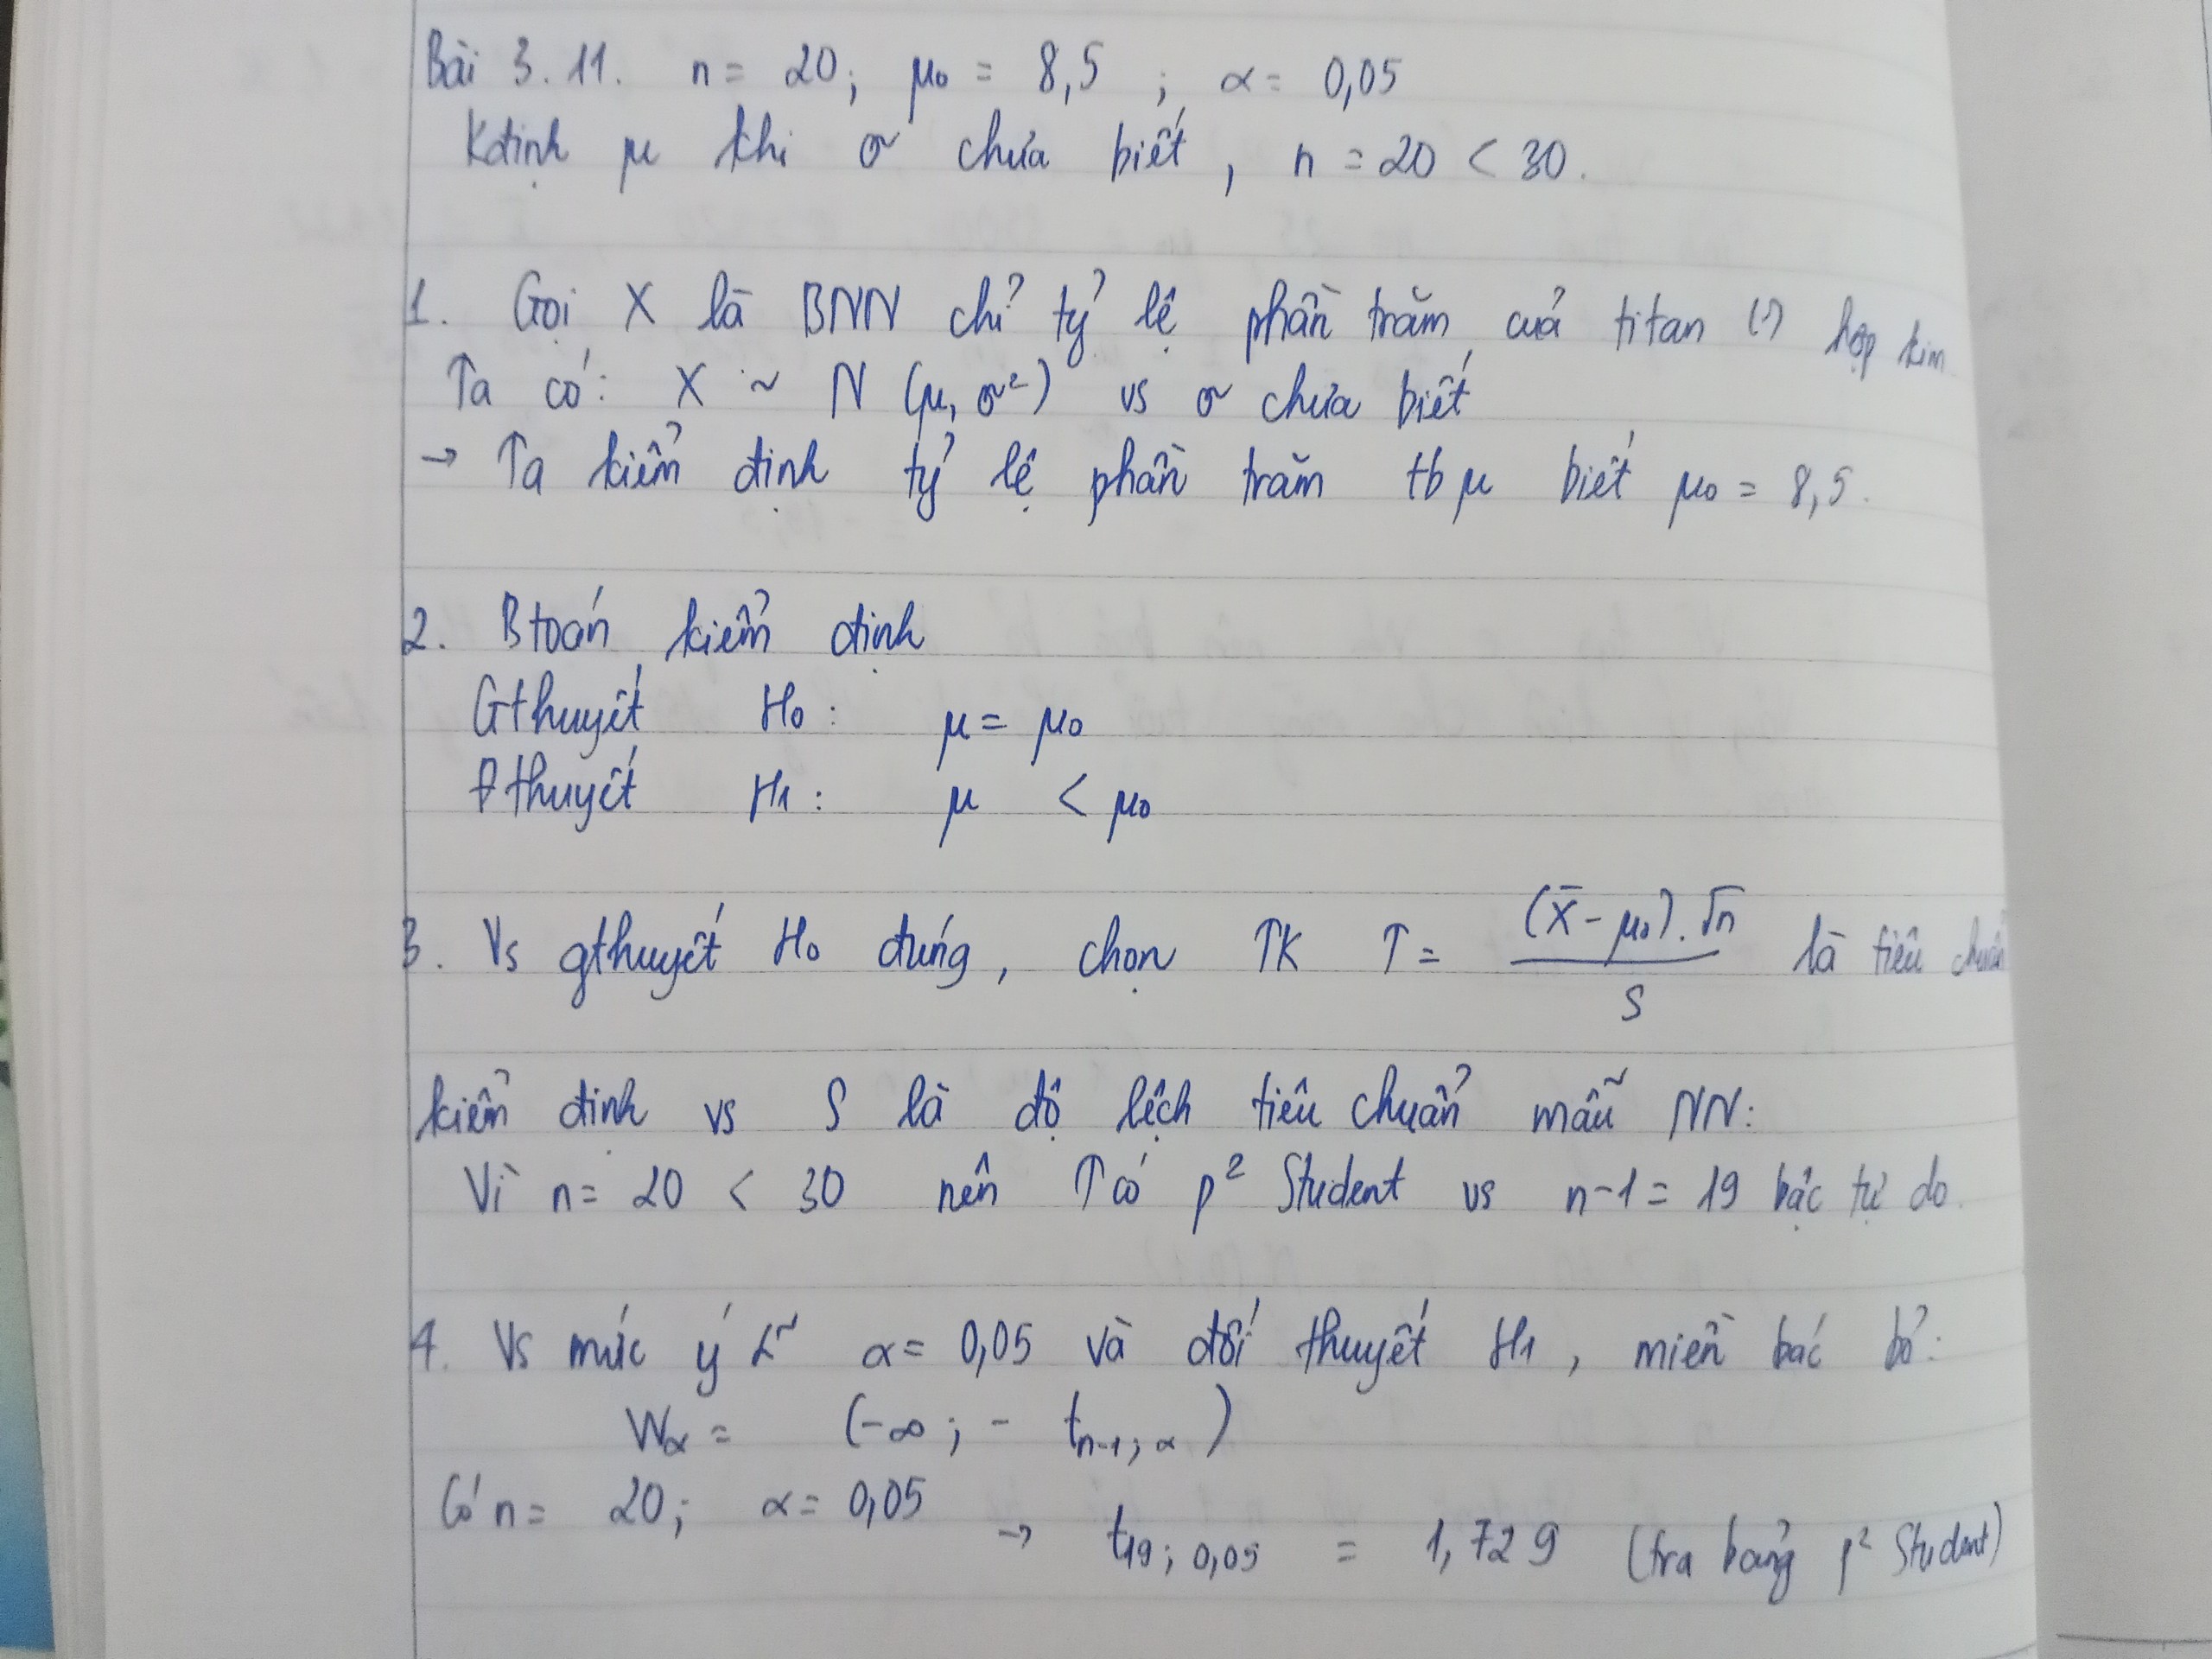 Bài 3.11. n = 20; μ₀ = 8,5 ; α = 0,05
Kđịnh μ khi σ chưa biết, n = 20 < 30.
1. Gọi X là BNN chỉ tỷ lệ phần trăm của titan (·) hợp kim
Ta có: X ~ N (μ, σ²) vs σ chưa biết
→ Ta kiểm định tỷ lệ phần trăm tb μ biết μ₀ = 8,5.
2. Btoán kiểm định
Gthuyết H₀: μ = μ₀
Đthuyết H₁: μ < μ₀
3. Vs gthuyết H₀ đúng, chọn TK T = (X̄ - μ₀).√n / S là tiêu chuẩn
kiểm định vs S là độ lệch tiêu chuẩn mẫu NN:
Vì n = 20 < 30 nên T có p² Student vs n-1 = 19 bậc tự do.
4. Vs mức ý α = 0,05 và đối thuyết H₁, miền bác bỏ:
Wα = (-∞; - t n-1; α)
Có n = 20; α = 0,05 → t 19; 0,05 = 1,729 (tra bảng p² Student)